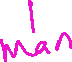 I
man